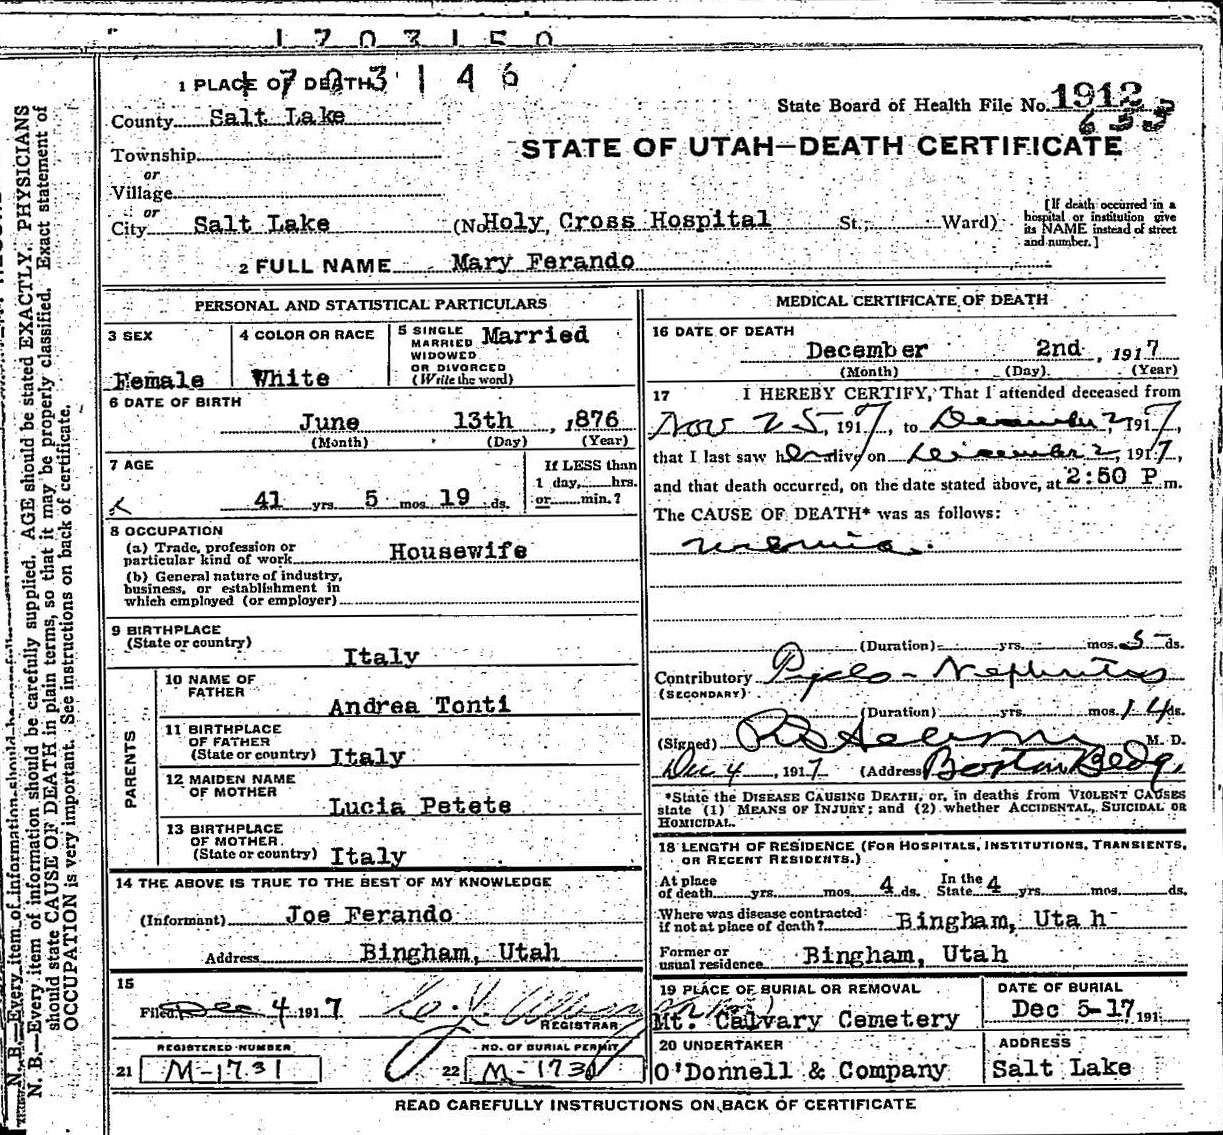 1703150
1703146
1 PLACE OF DEATH
State Board of Health File No. 1912
County Salt Lake
STATE OF UTAH—DEATH CERTIFICATE
Township
or
Village
or
City Salt Lake (No. Holy Cross Hospital St.; Ward)
[If death occurred in a hospital or institution give its NAME instead of street and number.]
2 FULL NAME Mary Ferando
PERSONAL AND STATISTICAL PARTICULARS
3 SEX
Female
4 COLOR OR RACE
White
5 SINGLE MARRIED WIDOWED OR DIVORCED (Write the word)
Married
6 DATE OF BIRTH
June 13th, 1876
(Month) (Day) (Year)
7 AGE
41 yrs 5 mos 19 ds.
If LESS than
1 day, hrs.
or min.?
8 OCCUPATION
(a) Trade, profession or
particular kind of work Housewife
(b) General nature of industry,
business, or establishment in
which employed (or employer)
9 BIRTHPLACE
(State or country)
Italy
PARENTS
10 NAME OF FATHER
Andrea Tonti
11 BIRTHPLACE OF FATHER
(State or country) Italy
12 MAIDEN NAME OF MOTHER
Lucia Petete
13 BIRTHPLACE OF MOTHER
(State or country) Italy
14 THE ABOVE IS TRUE TO THE BEST OF MY KNOWLEDGE
(Informant) Joe Ferando
Address Bingham, Utah
15
Filed Dec 4 1917
REGISTRAR
REGISTERED NUMBER
21 M-1731
NO. OF BURIAL PERMIT
22 M-1730
MEDICAL CERTIFICATE OF DEATH
16 DATE OF DEATH
December 2nd, 1917
(Month) (Day) (Year)
17 I HEREBY CERTIFY, That I attended deceased from
Nov 25, 1917, to December 2, 1917,
that I last saw her alive on December 2, 1917,
and that death occurred, on the date stated above, at 2:50 P.m.
The CAUSE OF DEATH* was as follows:
Uremia.
(Duration) yrs. mos. 5 ds.
Contributory Pyelo-Nephritis
(SECONDARY)
(Duration) yrs. mos. 14 ds.
(Signed) M. D.
Dec 4, 1917 (Address) Boston Bldg.
*State the DISEASE CAUSING DEATH, or, in deaths from VIOLENT CAUSES
state (1) MEANS OF INJURY; and (2) whether ACCIDENTAL, SUICIDAL OR
HOMICIDAL.
18 LENGTH OF RESIDENCE (FOR HOSPITALS, INSTITUTIONS, TRANSIENTS,
OR RECENT RESIDENTS.)
At place of death yrs. mos. 4 ds. In the State 4 yrs. mos. ds.
Where was disease contracted
if not at place of death? Bingham, Utah
Former or
usual residence Bingham, Utah
19 PLACE OF BURIAL OR REMOVAL
Mt. Calvary Cemetery
DATE OF BURIAL
Dec 5-17 191
20 UNDERTAKER
O'Donnell & Company
ADDRESS
Salt Lake
READ CAREFULLY INSTRUCTIONS ON BACK OF CERTIFICATE
N. B.—Every item of information should be carefully supplied. AGE should be stated EXACTLY. PHYSICIANS
should state CAUSE OF DEATH in plain terms, so that it may be properly classified. Exact statement of
OCCUPATION is very important. See instructions on back of certificate.